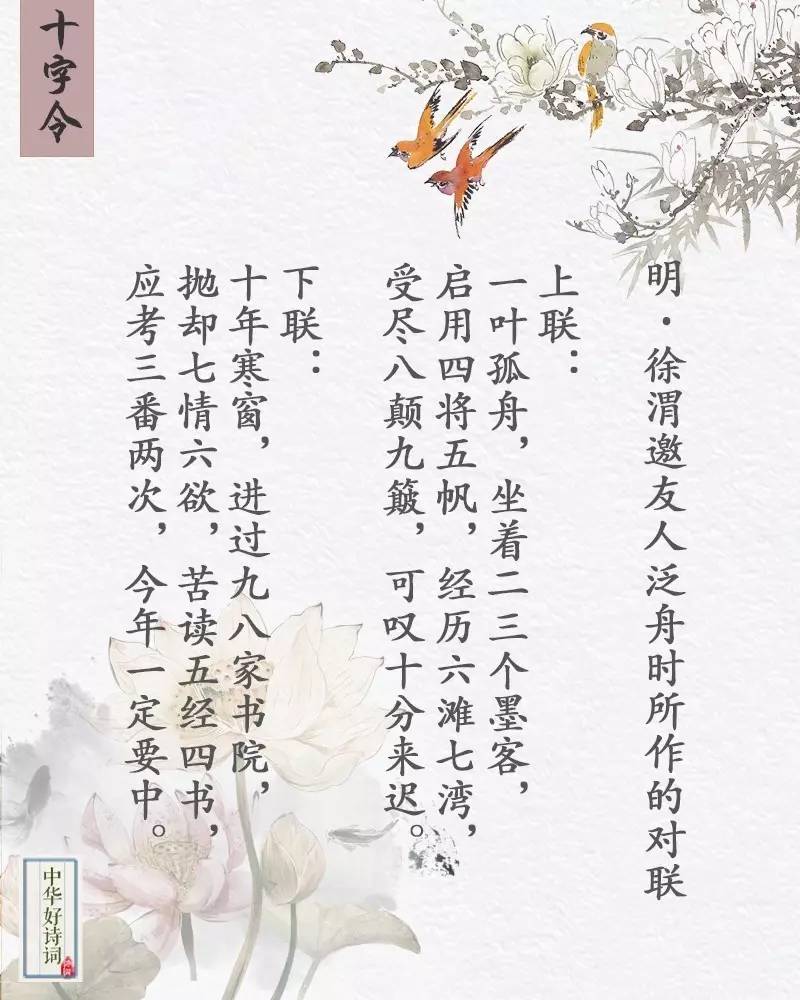 十字令
明·徐渭邀友人泛舟时所作的对联
上联：
一叶孤舟，坐着二三个墨客，
启用四将五帆，经历六滩七湾，
受尽八颠九簸，可叹十分来迟。
下联：
十年寒窗，进过九八家书院，
抛却七情六欲，苦读五经四书，
应考三番两次，今年一定要中。
中华好诗词